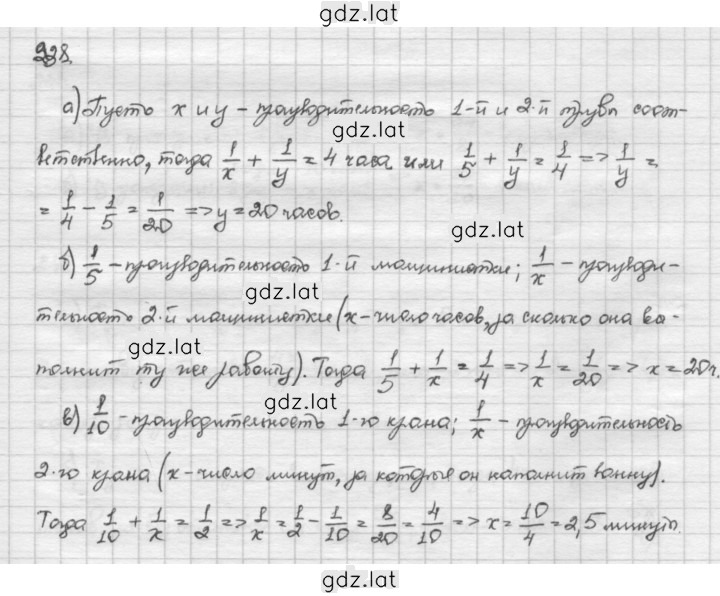 gdz.lat
338.
а) Пусть x и y – производительность 1-й и 2-й трубы соот-
gdz.lat
ветственно, тогда 1/x + 1/y = 4 часа или 1/5 + 1/y = 1/4 => 1/y =
= 1/4 - 1/5 = 1/20 => y = 20 часов.
gdz.lat
б) 1/5 – производительность 1-й машинистки; 1/x – производи-
gdz.lat
тельность 2-й машинистки (x – число часов, за сколько она вы-
gdz.lat
полнит ту же работу). Тогда 1/5 + 1/x = 1/4 => 1/x = 1/20 => x = 20 ч.
gdz.lat
в) 1/10 – производительность 1-го крана; 1/x – производительность
gdz.lat
2-го крана (x – число минут, за которые он наполнит ванну).
gdz.lat
Тогда 1/10 + 1/x = 1/2 => 1/x = 1/2 - 1/10 = 8/20 = 4/10 => x = 10/4 = 2,5 минут.
gdz.lat